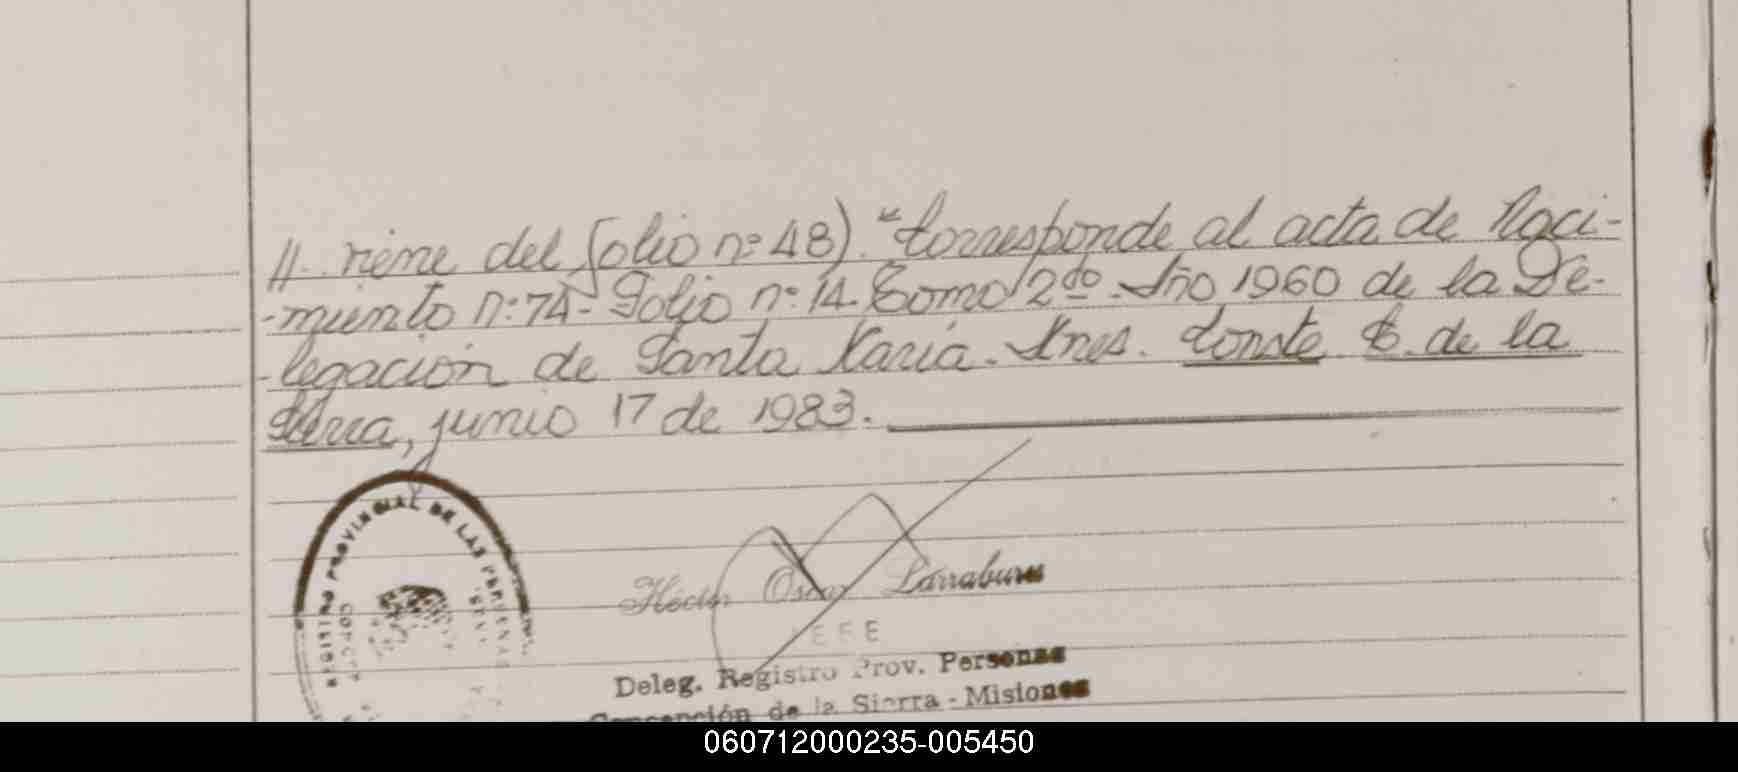 //. viene del folio nº 48). "Corresponde al acta de Naci-
-miento nº: 74 - Folio nº: 14. Tomo 2do. Año 1960 de la De-
-legación de Santa María. Ines. Conste C. de la
Sierra, junio 17 de 1983.
REGISTRO PROVINCIAL DE LAS PERSONAS
Héctor Oscar Larraburu
JEFE
Deleg. Registro Prov. Personas
Concepción de la Sierra - Misiones
060712000235-005450